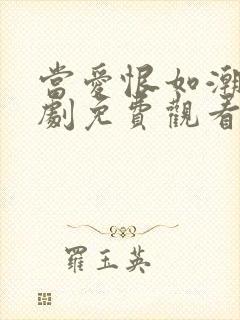 當愛恨如潮
劇免費觀看
羅玉英